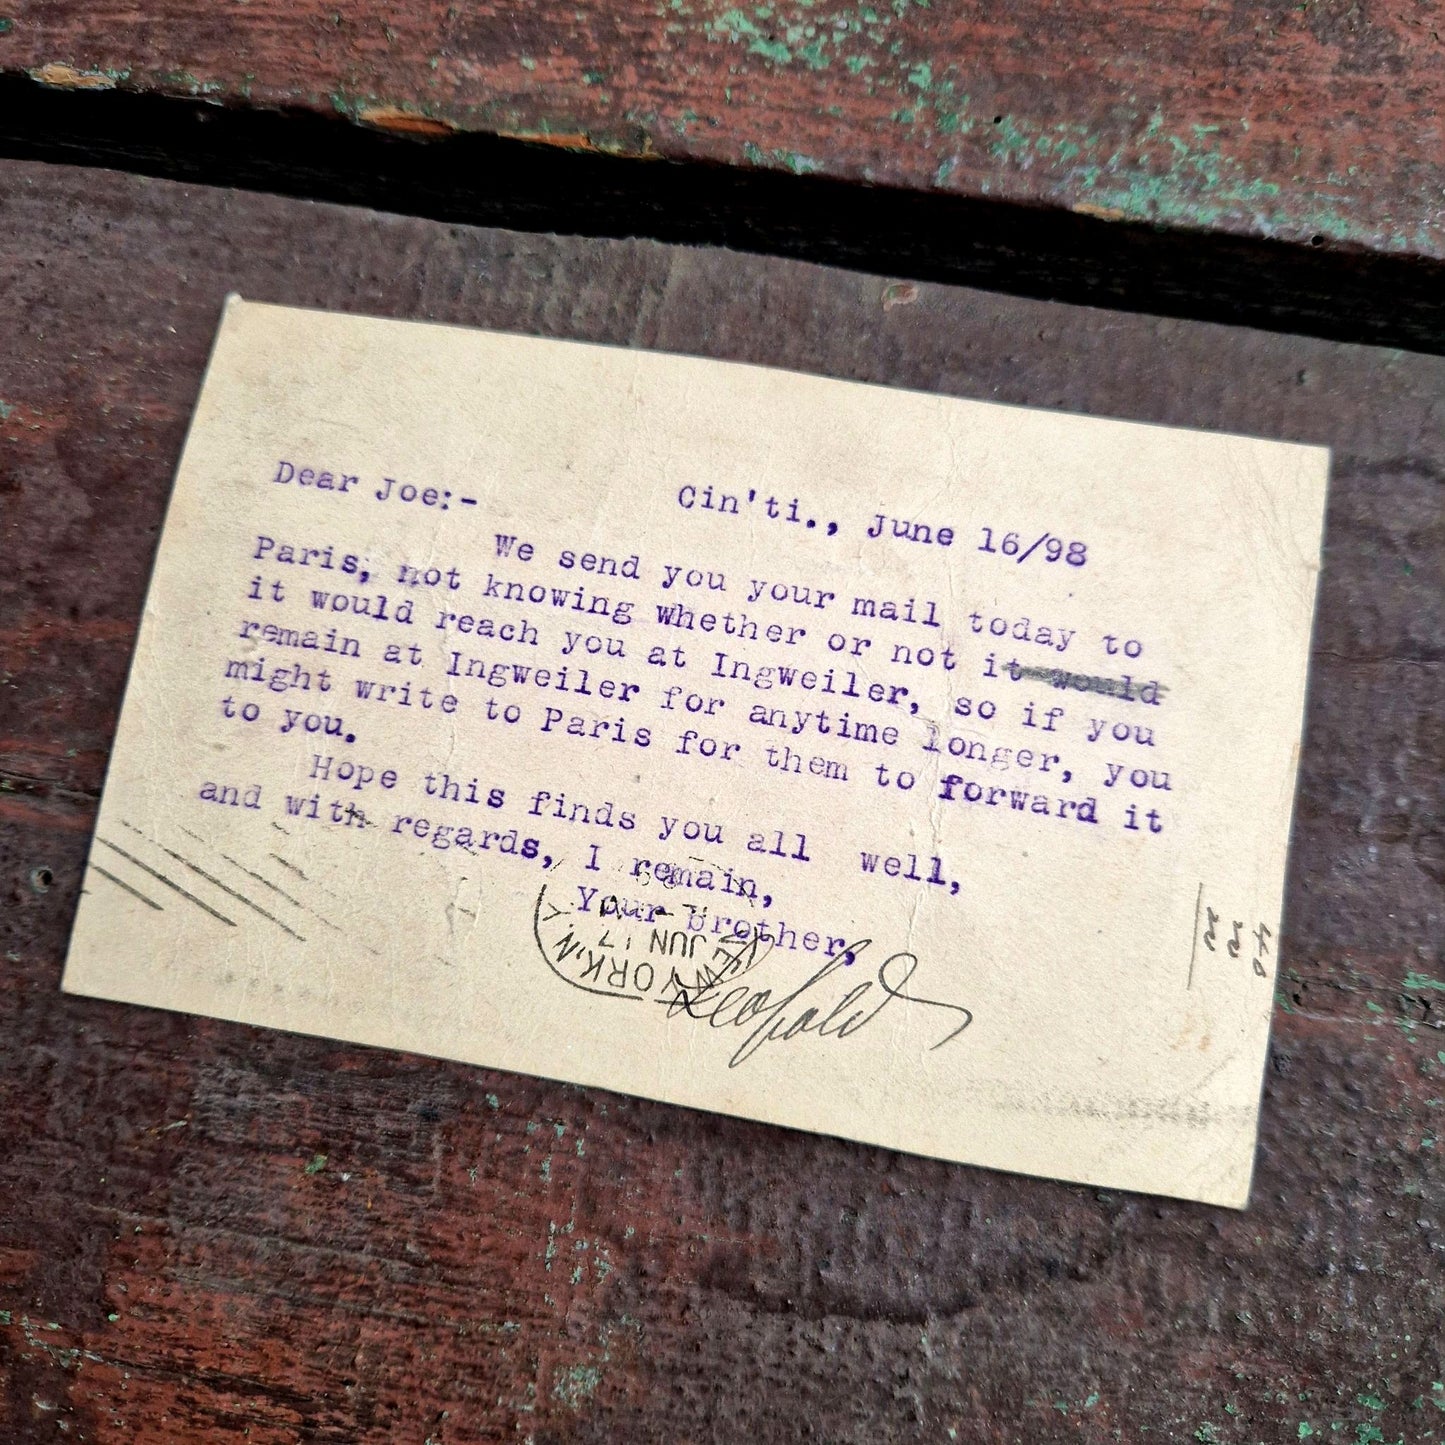 Dear Joe:- Cin'ti., June 16/98
We send you your mail today to
Paris, not knowing whether or not it would
it would reach you at Ingweiler, so if you
remain at Ingweiler for anytime longer, you
might write to Paris for them to forward it
to you.
Hope this finds you all well,
and with regards, I remain,
Your brother,
Leopold
NEW YORK, N.Y.
JUN 17